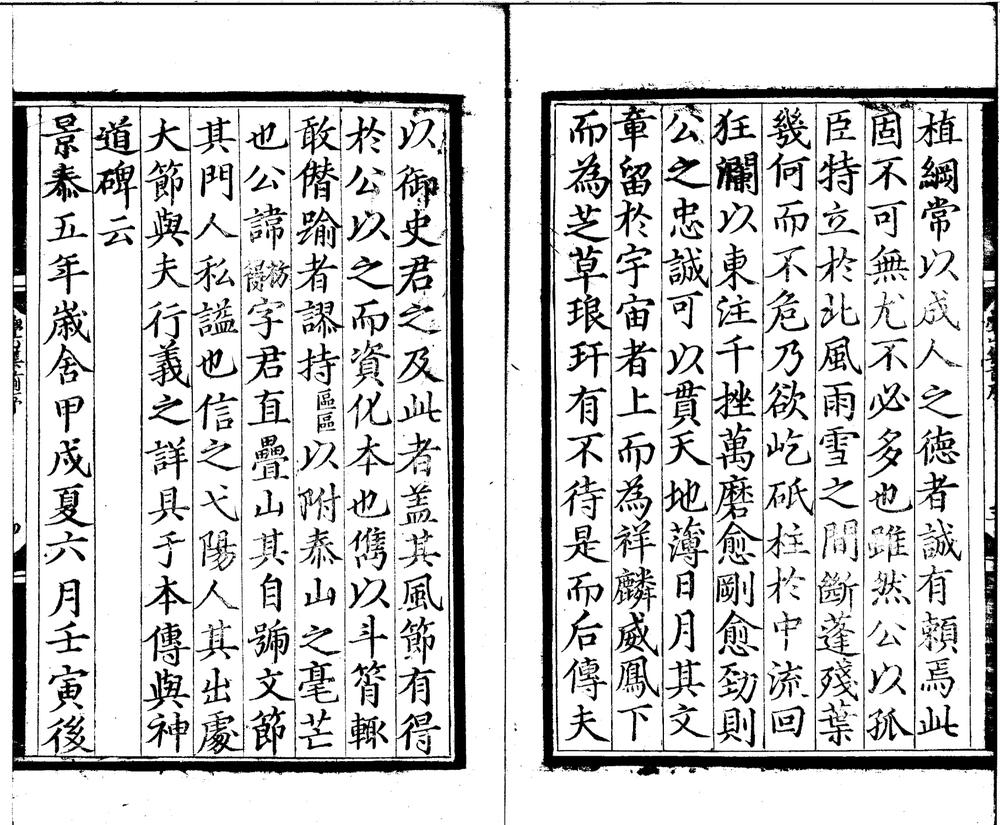 植綱常以成人之德者誠有賴焉此
固不可無尤不必多也雖然公以孤
臣特立於北風雨雪之間斷蓬殘葉
幾何而不危乃欲屹砥柱於中流回
狂瀾以東注千挫萬磨愈剛愈勁則
公之忠誠可以貫天地薄日月其文
章留於宇宙者上而為祥麟威鳳下
而為芝草琅玕有不待是而后傳夫
以御史君之及此者盖其風節有得
於公以之而資化本也儁以斗筲輙
敢僭踰者謬持區區以附泰山之毫芒
也公諱枋得字君直疊山其自號文節
其門人私謚也信之弋陽人其出處
大節與夫行義之詳具于本傳與神
道碑云
景泰五年歲舍甲戌夏六月壬寅後